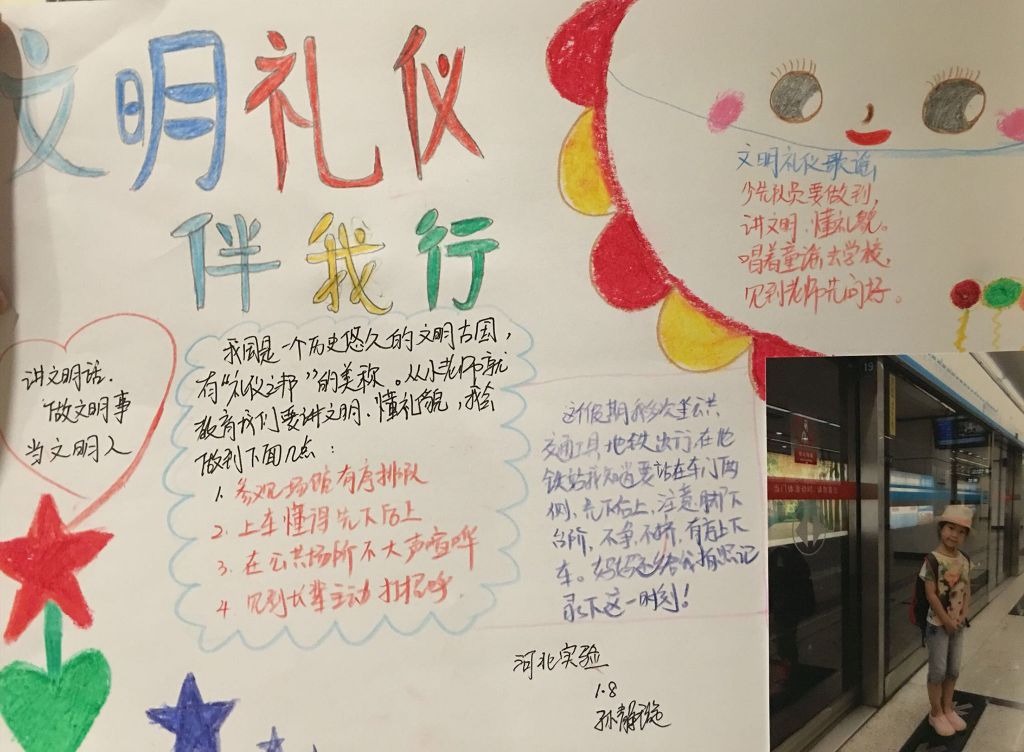 文明礼仪
伴我行
文明礼仪歌谣
少先队员要做到,
讲文明、懂礼貌。
唱着童谣去学校,
见到老师先问好。
讲文明话.
做文明事
当文明人
我国是一个历史悠久的文明古国,
有“礼仪之邦”的美称。从小老师就
教育我们要讲文明、懂礼貌,我会
做到下面几点:
1. 参观场馆有序排队
2. 上车懂得先下后上
3. 在公共场所不大声喧哗
4. 见到长辈主动打招呼.
这个假期我多次坐公共
交通工具地铁出行,在地
铁站我知道要站在车门两
侧,先下后上,注意脚下
台阶,不争、不挤,有序上下
车。妈妈还给我拍照记
录下这一时刻!
河北实验
1.8
孙静
19